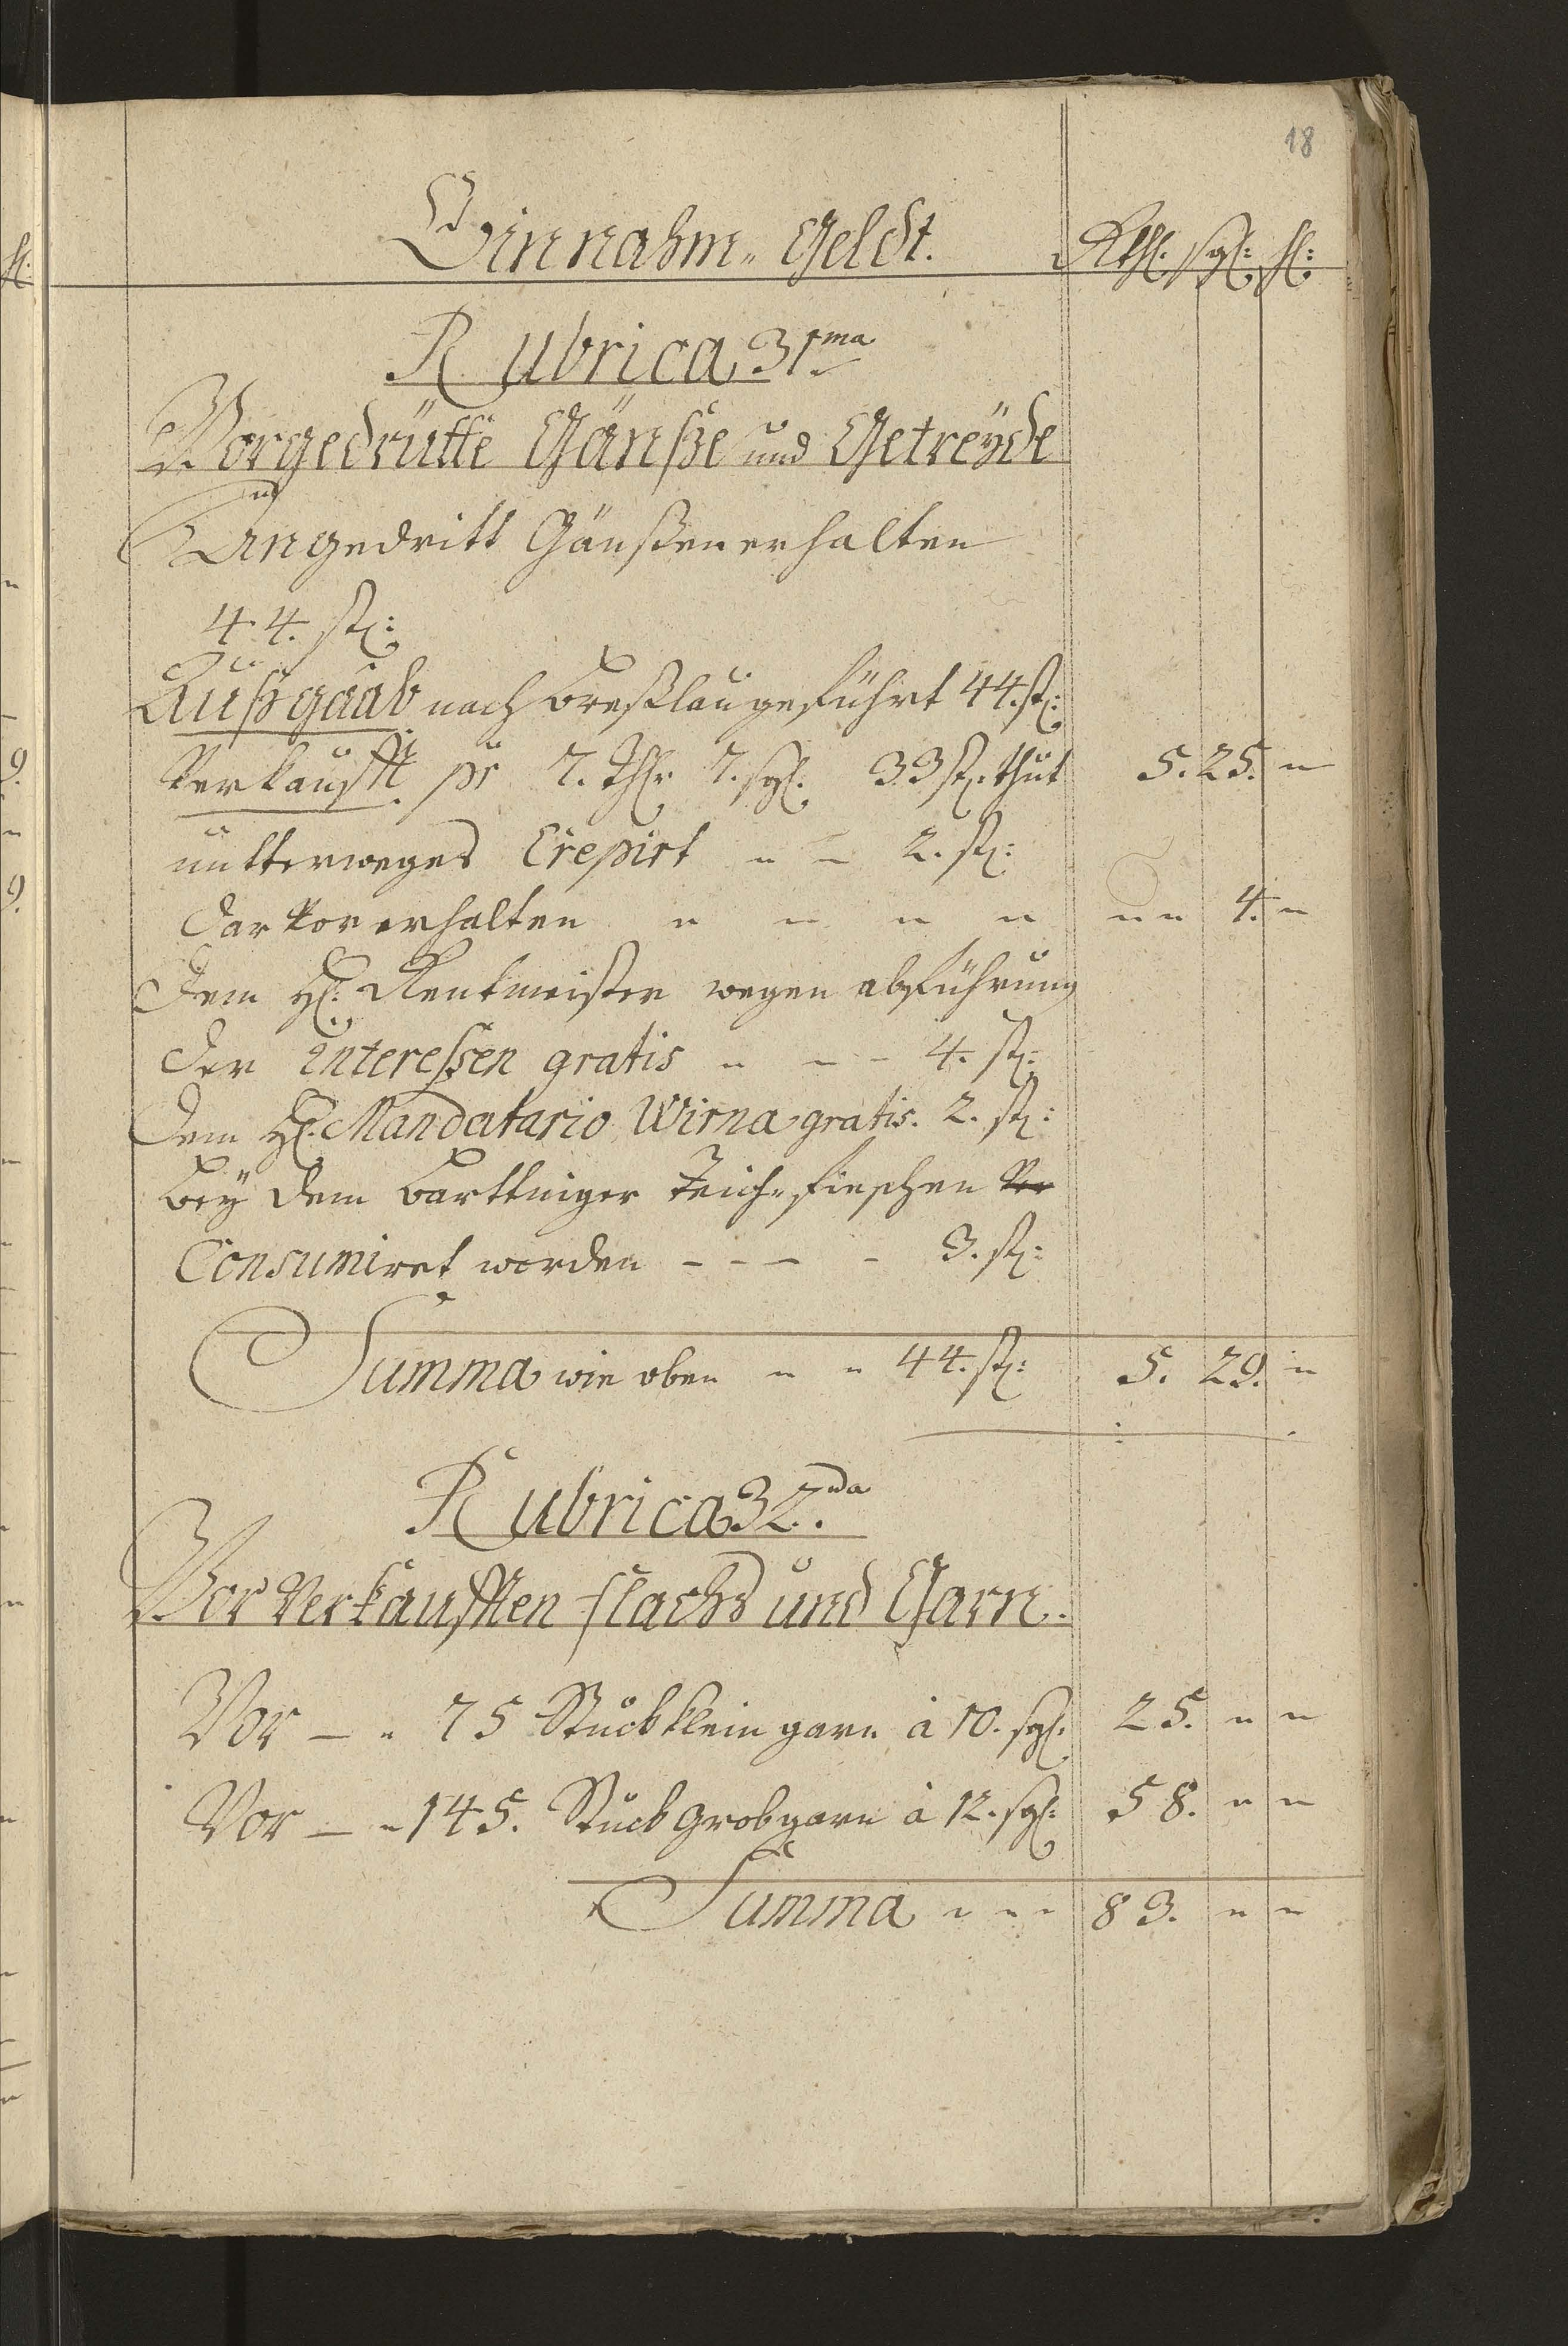 18
Einnahm„ Geldt. Rthl. sgl: hl:
Rubrica 31ma
Vorgedrütte Gänße und Getreÿde
An gedritt Gänßen erhalten
44. st:
Außgaab nach Breßlau geführt 44. st:
Verkaufft pr 33 st. thut 5. 25. "
untterweges Crepirt " - 2. st:
dar vor erhalten " " " " " " 4. "
dem H: Rentmeister wegen abführung
der Interessen gratis " - - 4. st:
dem H: Mandatario Wirna gratis. 2. st:
beÿ dem Barttniger Teich„ fieschen
Consumiret worden - - - - 3. st:
Summa wie oben " " 44. st: 5. 29. "
Rubrica 32.da
Vor Verkaufften flachs und Garn.
Vor — " 75 Stück klein garn à 10. sgl. 25. " "
Vor — " 145. Stück grob garn à 12. sgl: 58. " "
Summa " " " 83. " "